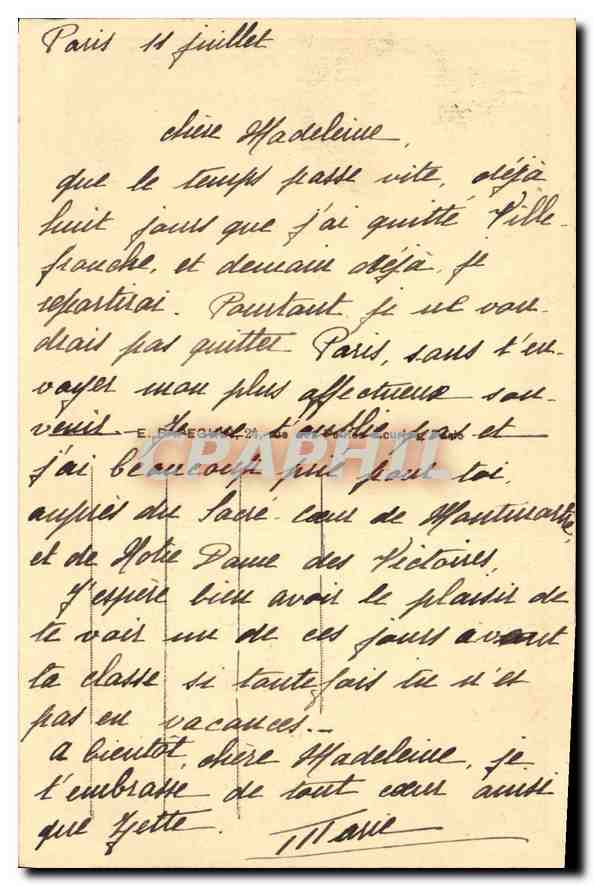 Paris 11 juillet
chère Madeleine,
que le temps passe vite, déjà
huit jours que j'ai quitté Ville-
franche, et demain déjà, je
repartirai. Pourtant je ne vou-
drais pas quitter Paris, sans t'en-
voyer mon plus affectueux sou-
venir. Je ne t'oublie pas et
j'ai beaucoup prié pour toi,
auprès du Sacré-cœur de Montmartre,
et de Notre Dame des Victoires,
J'espère bien avoir le plaisir de
te voir un de ces jours avant
ta classe si toutefois tu n'es
pas en vacances.—
A bientôt, chère Madeleine, je
t'embrasse de tout cœur ainsi
que Zette. Marie
CPARHIL